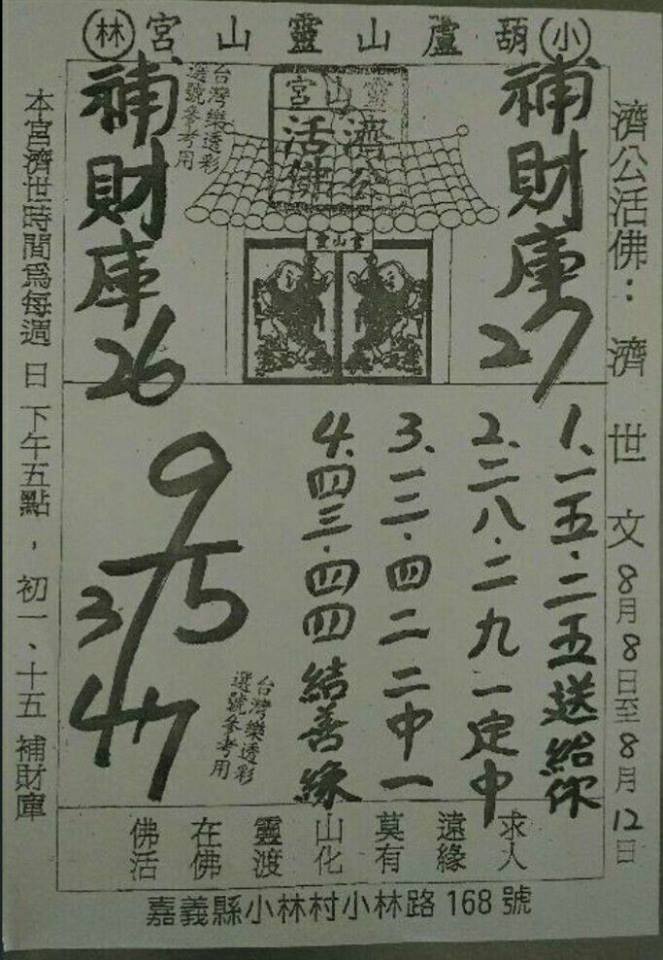 ㊥小 葫蘆山靈山宮 林
濟公活佛：濟世文 8月8日至8月12日
補財庫 27
靈山宮
濟公活佛
靈山宮
台灣樂透彩
選號參考用
補財庫 26
1、一五．二五送給你
2、二八．二九一定中
3、一三．四二二中一
4、四三．四四結善緣
台灣樂透彩
選號參考用
9
3 75
47
求人
遠緣
莫有
山化
靈渡
在佛
佛活
本宮濟世時間為每週日下午五點，初一、十五 補財庫
嘉義縣小林村小林路168號